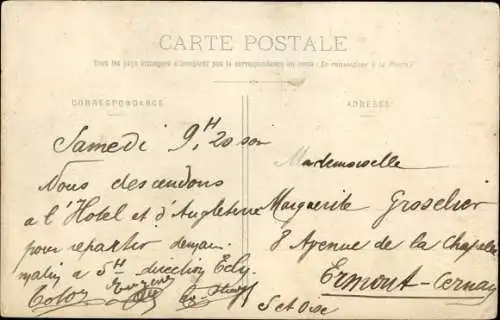 CARTE POSTALE
Tous les pays étrangers n'acceptent pas la correspondance au recto (Se renseigner à la Poste)
CORRESPONDANCE
ADRESSE
Samedi 9H 20 soir
Nous descendons
a l'Hotel et d'Angleterre
pour repartir demain
matin a 5H direction
Mademoiselle
Marguerite Groselier
8 Avenue de la Chapelle
Ermont-Cernay
S et Oise